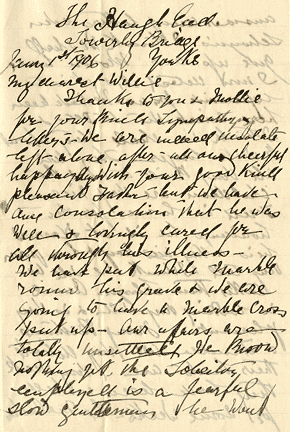 The Haugh End.
Sowerby Bridge
Jany 1st 1906 Yorks
My dearest Willie
Thanks to you & Mollie
for your kind sympathy &
letters - we are indeed desolate
left alone after all our cheerful
happy days with your good kind
pleasant Father - but we have
one consolation that he was
well & lovingly cared for
all through his illness -
We have put white marble
round his grave & we are
going to have a marble Cross
put up - our affairs are
totally unsettled, we know
nothing yet, the Solicitor
employed is a fearful
slow gentleman he wont